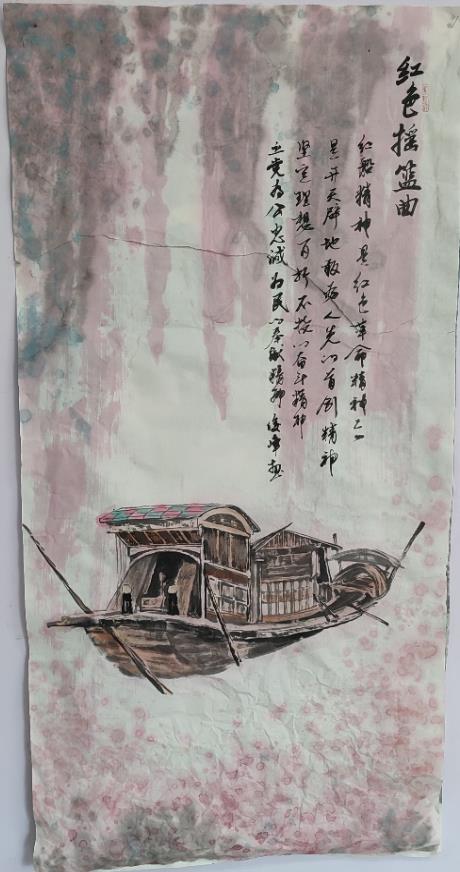 红色摇篮曲
红船精神是红色革命精神之一
是开天辟地敢为人先的首创精神
坚定理想百折不挠的奋斗精神
立党为公忠诚为民的奉献精神